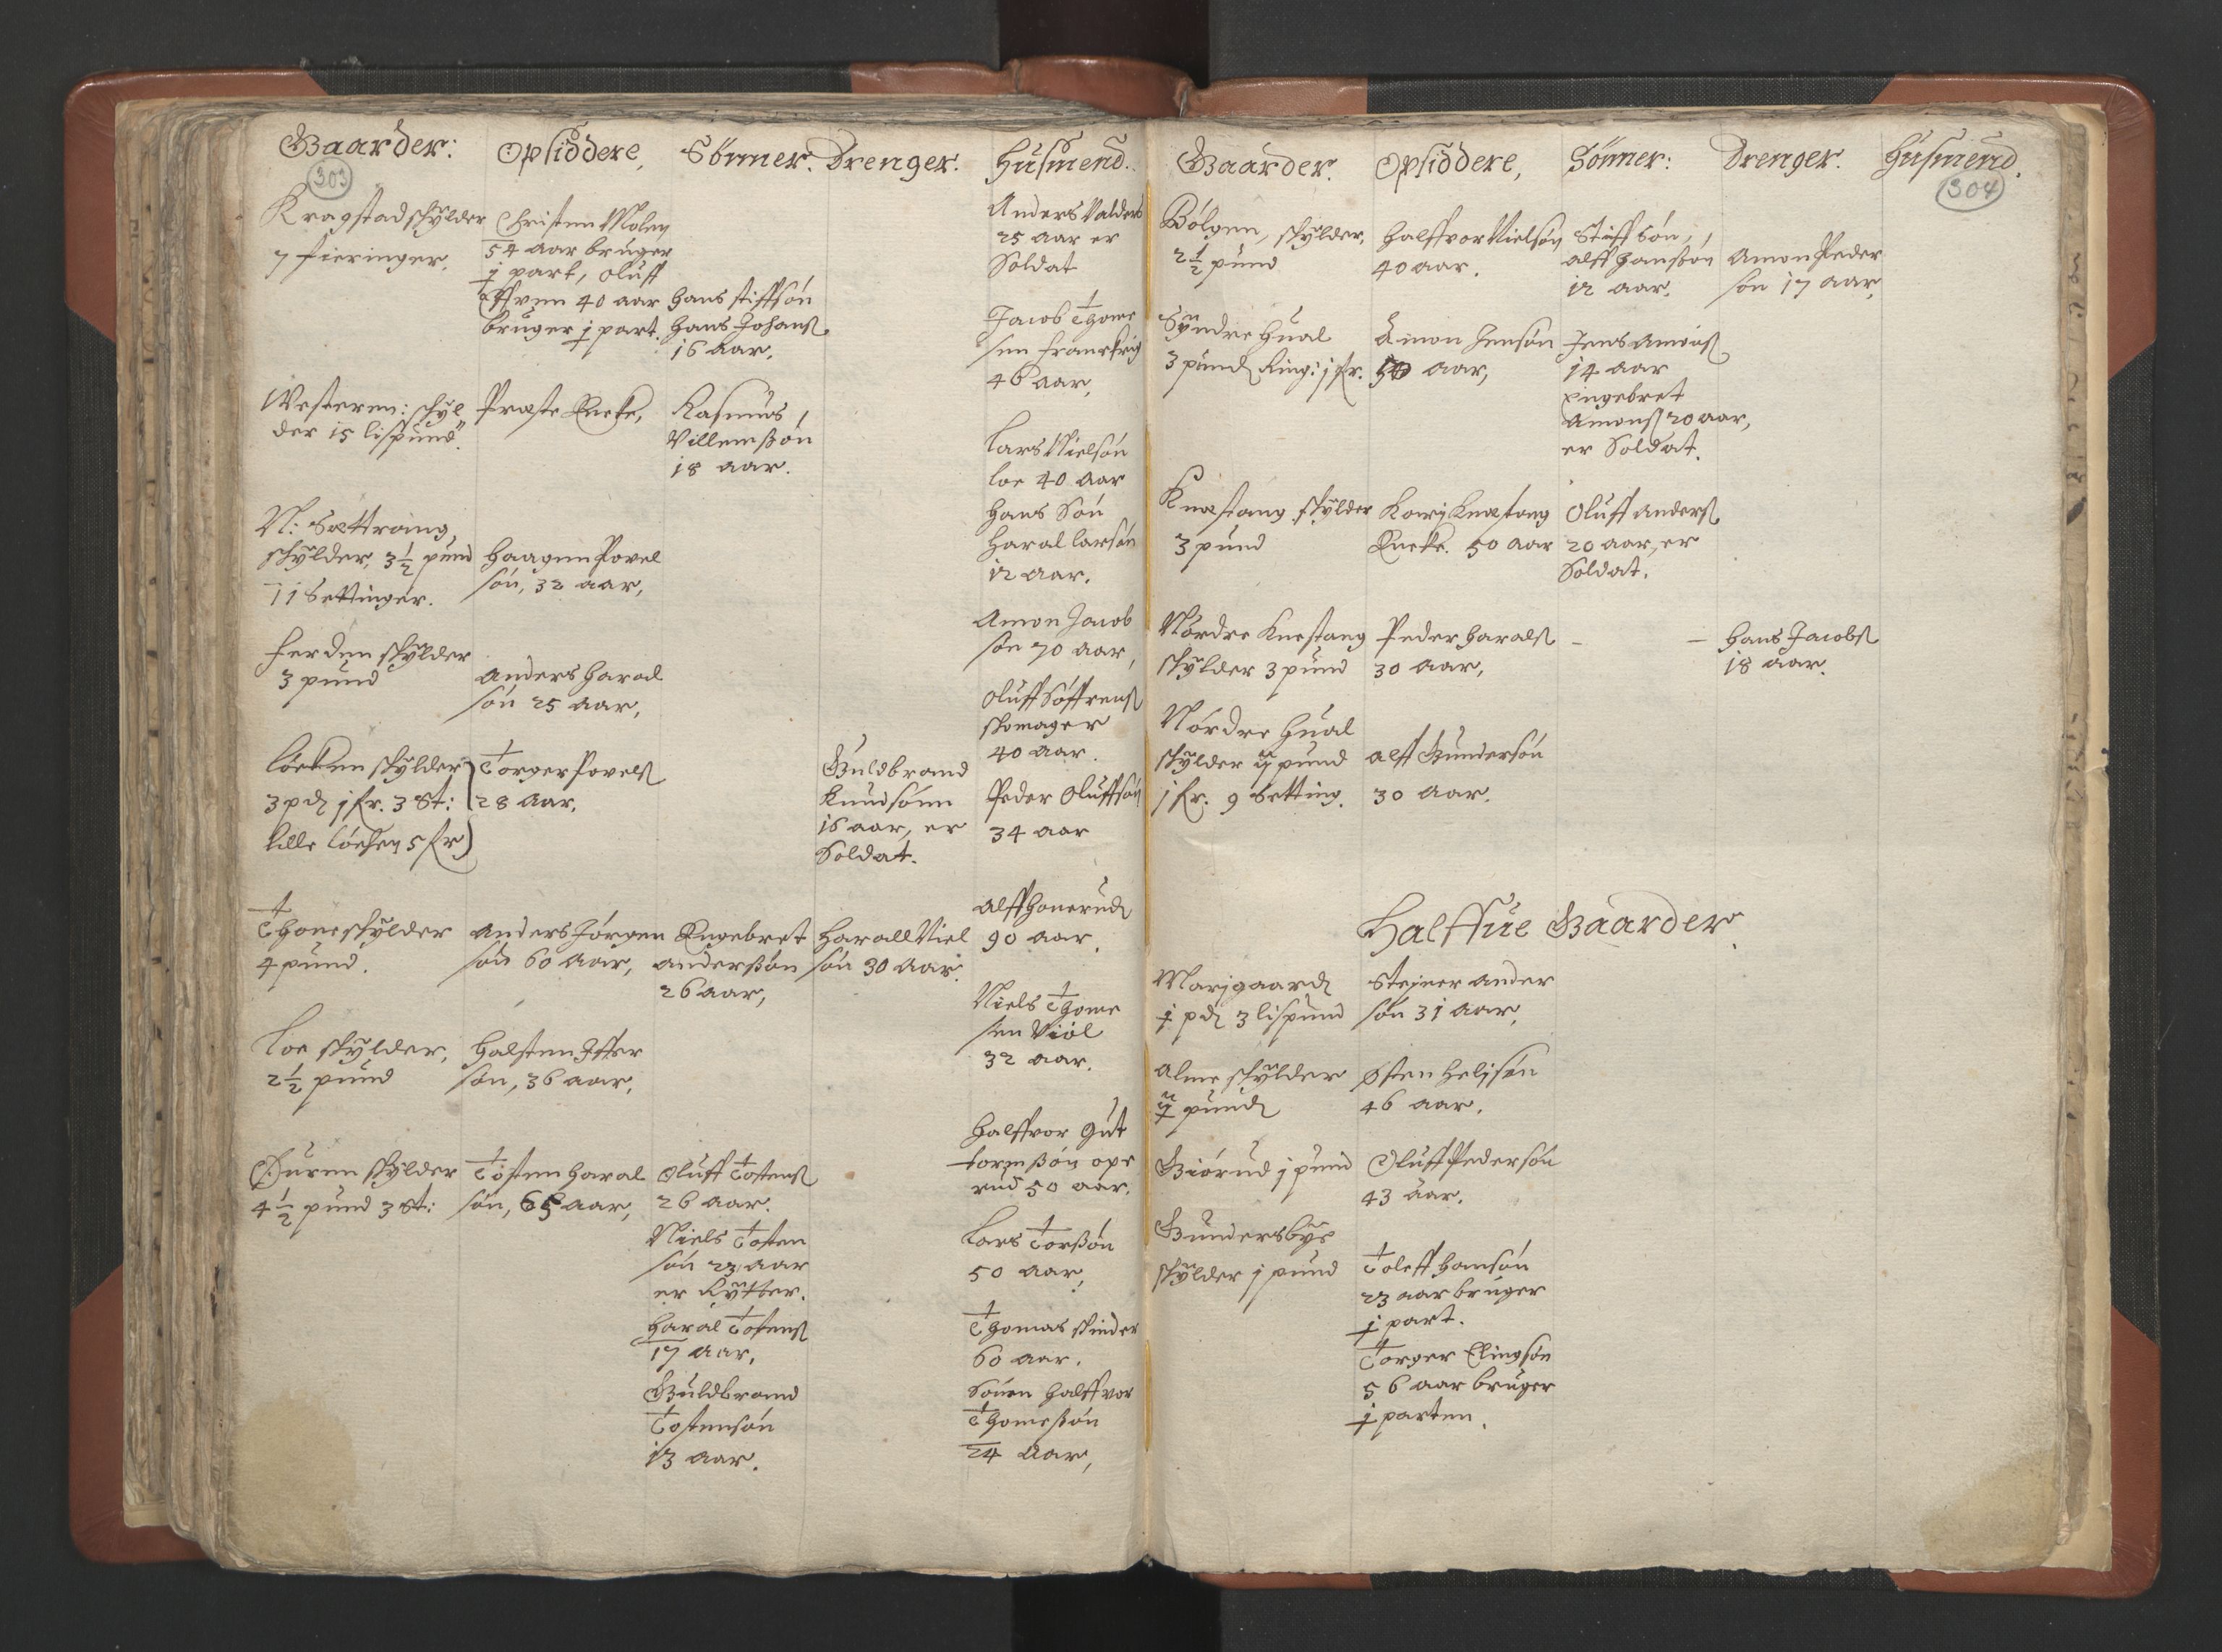 Gaarder:
Opsiddere,
Sönner:
Drenger.
Husmend.
303
Kragstad skÿlder
7 fieringer.
Christen Molen
54 aar bruger
½ part, Oluff
40 aar
bruger ½ part.
Hans stiffsön
Hans Johanß.
16 aar.
Anders Valders
25 aar er
Soldat
Jacob Thome
sen
46 aar,
Westeren: schÿl
der 15 lispund.
Præste Encke,
Rasmus
Villemssön
18 aar.
Lars Nielsön
Loe 40 aar
Hans Sön
Haral Larsön
12 aar.
N: Sættrang
skÿlder, 3½ pund
11 Settinger.
Haagen Povel
sön, 32 aar,
Amon Jacob
sön 70 aar,
Ferden skÿlder
3 pund
Anders Harad
sön 25 aar,
Oluff Söffrenß
skomager
40 aar.
Löeken skÿlder
3 pd 1 fr. 3 st:
Lille Löeken 5 fr
Torger Povelß
28 aar.
Guldbrand
Knudsönn
16 aar, er
Soldat.
Peder Oluffsön
34 aar
Thone skÿlder
4 pund.
Anders Jörgen
sön 60 aar,
Engebret
Anderssön
26 aar,
Harall Niel
sön 30 aar.
Alff Honerud
90 aar.
Niels Thome
sen Viol
32 aar.
Loe skÿlder,
2½ pund
Halsten Iffer
sön, 36 aar,
Halffvor Gut
tormssön ope
rud 50 aar.
Buren skÿlder
4½ pund 3 st:
Tosten Haral
sön, 65 aar,
Oluff Tostenß
26 aar.
Niels Tosten
sön 23 aar
er Rÿtter.
Haral Tostenß
17 aar,
Guldbrand
Tostensön
13 aar.
Lars Torssön
50 aar,
Thomas skinder
60 aar.
Sönen Halffvor
Thomessön
24 aar,
Gaarder.
Opsiddere,
Sönner:
Drenger.
Husmend.
304
Bölgen, skÿlder,
2½ pund
Halffvor Nielsön
40 aar.
Stiff Sön,
Alff Hanssön
12 aar.
Amon Peder
sön 17 aar,
Syndre Hual
3 pund Ring: 1 fr.
Amon Jensön
50 aar,
Jens Amonß
14 aar
Engebret
Amonß 20 aar,
er Soldat.
Knestang skÿlder
3 pund
Karj Knestang
Encke. 50 aar
Oluff Anderß.
20 aar, er
Soldat.
Nördre Knestang
skÿlder 3 pund
Peder Haralß
30 aar,
Hans Jacobß
18 aar.
Nördre Hual
skÿlder ij pund
1 fr. 9 Setting.
Alff Gundersön
30 aar.
Halffue Gaarder
Marigaard
½ pd 3 lispund
Stejner Ander
sön 31 aar,
Alme skÿlder
pund
Østen Heljsön
46 aar.
Giörud 1 pund
Oluff Pedersön
43 aar.
Gundersbÿe
skÿlder 1 pund
Toleff Hansön
23 aar bruger
½ part.
Torger Elingsön
56 aar bruger
½ parten.